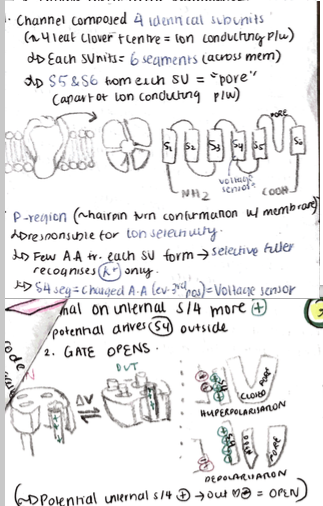 · Channel composed 4 identical subunits
(~4 leaf clover + centre = Ion conducting p/w)
↳ Each SUnits = 6 segments (across mem)
↳ S5 & S6 from each SU = "pore"
(apart of ion conducting p/w)
PORE
S1 S2 S3 S4 S5 S6
voltage
sensor
NH2 COOH
P-region (~hairpin turn conformation w/ membrane)
↳ responsible for ion selectivity.
↳ Few A.A fr. each SU form → selective filter
recognises K+ only.
↳ S4 seg = charged A.A (ev. 3rd pos) = Voltage sensor
nal on internal s/4 more +
potential drives S4 outside
2. GATE OPENS.
OUT
IN
ΔV
CLOSED
PORE
HYPERPOLARISATION
S4
OPEN
PORE
DEPOLARISATION
(↳ Potential internal s/4 + → out = OPEN)